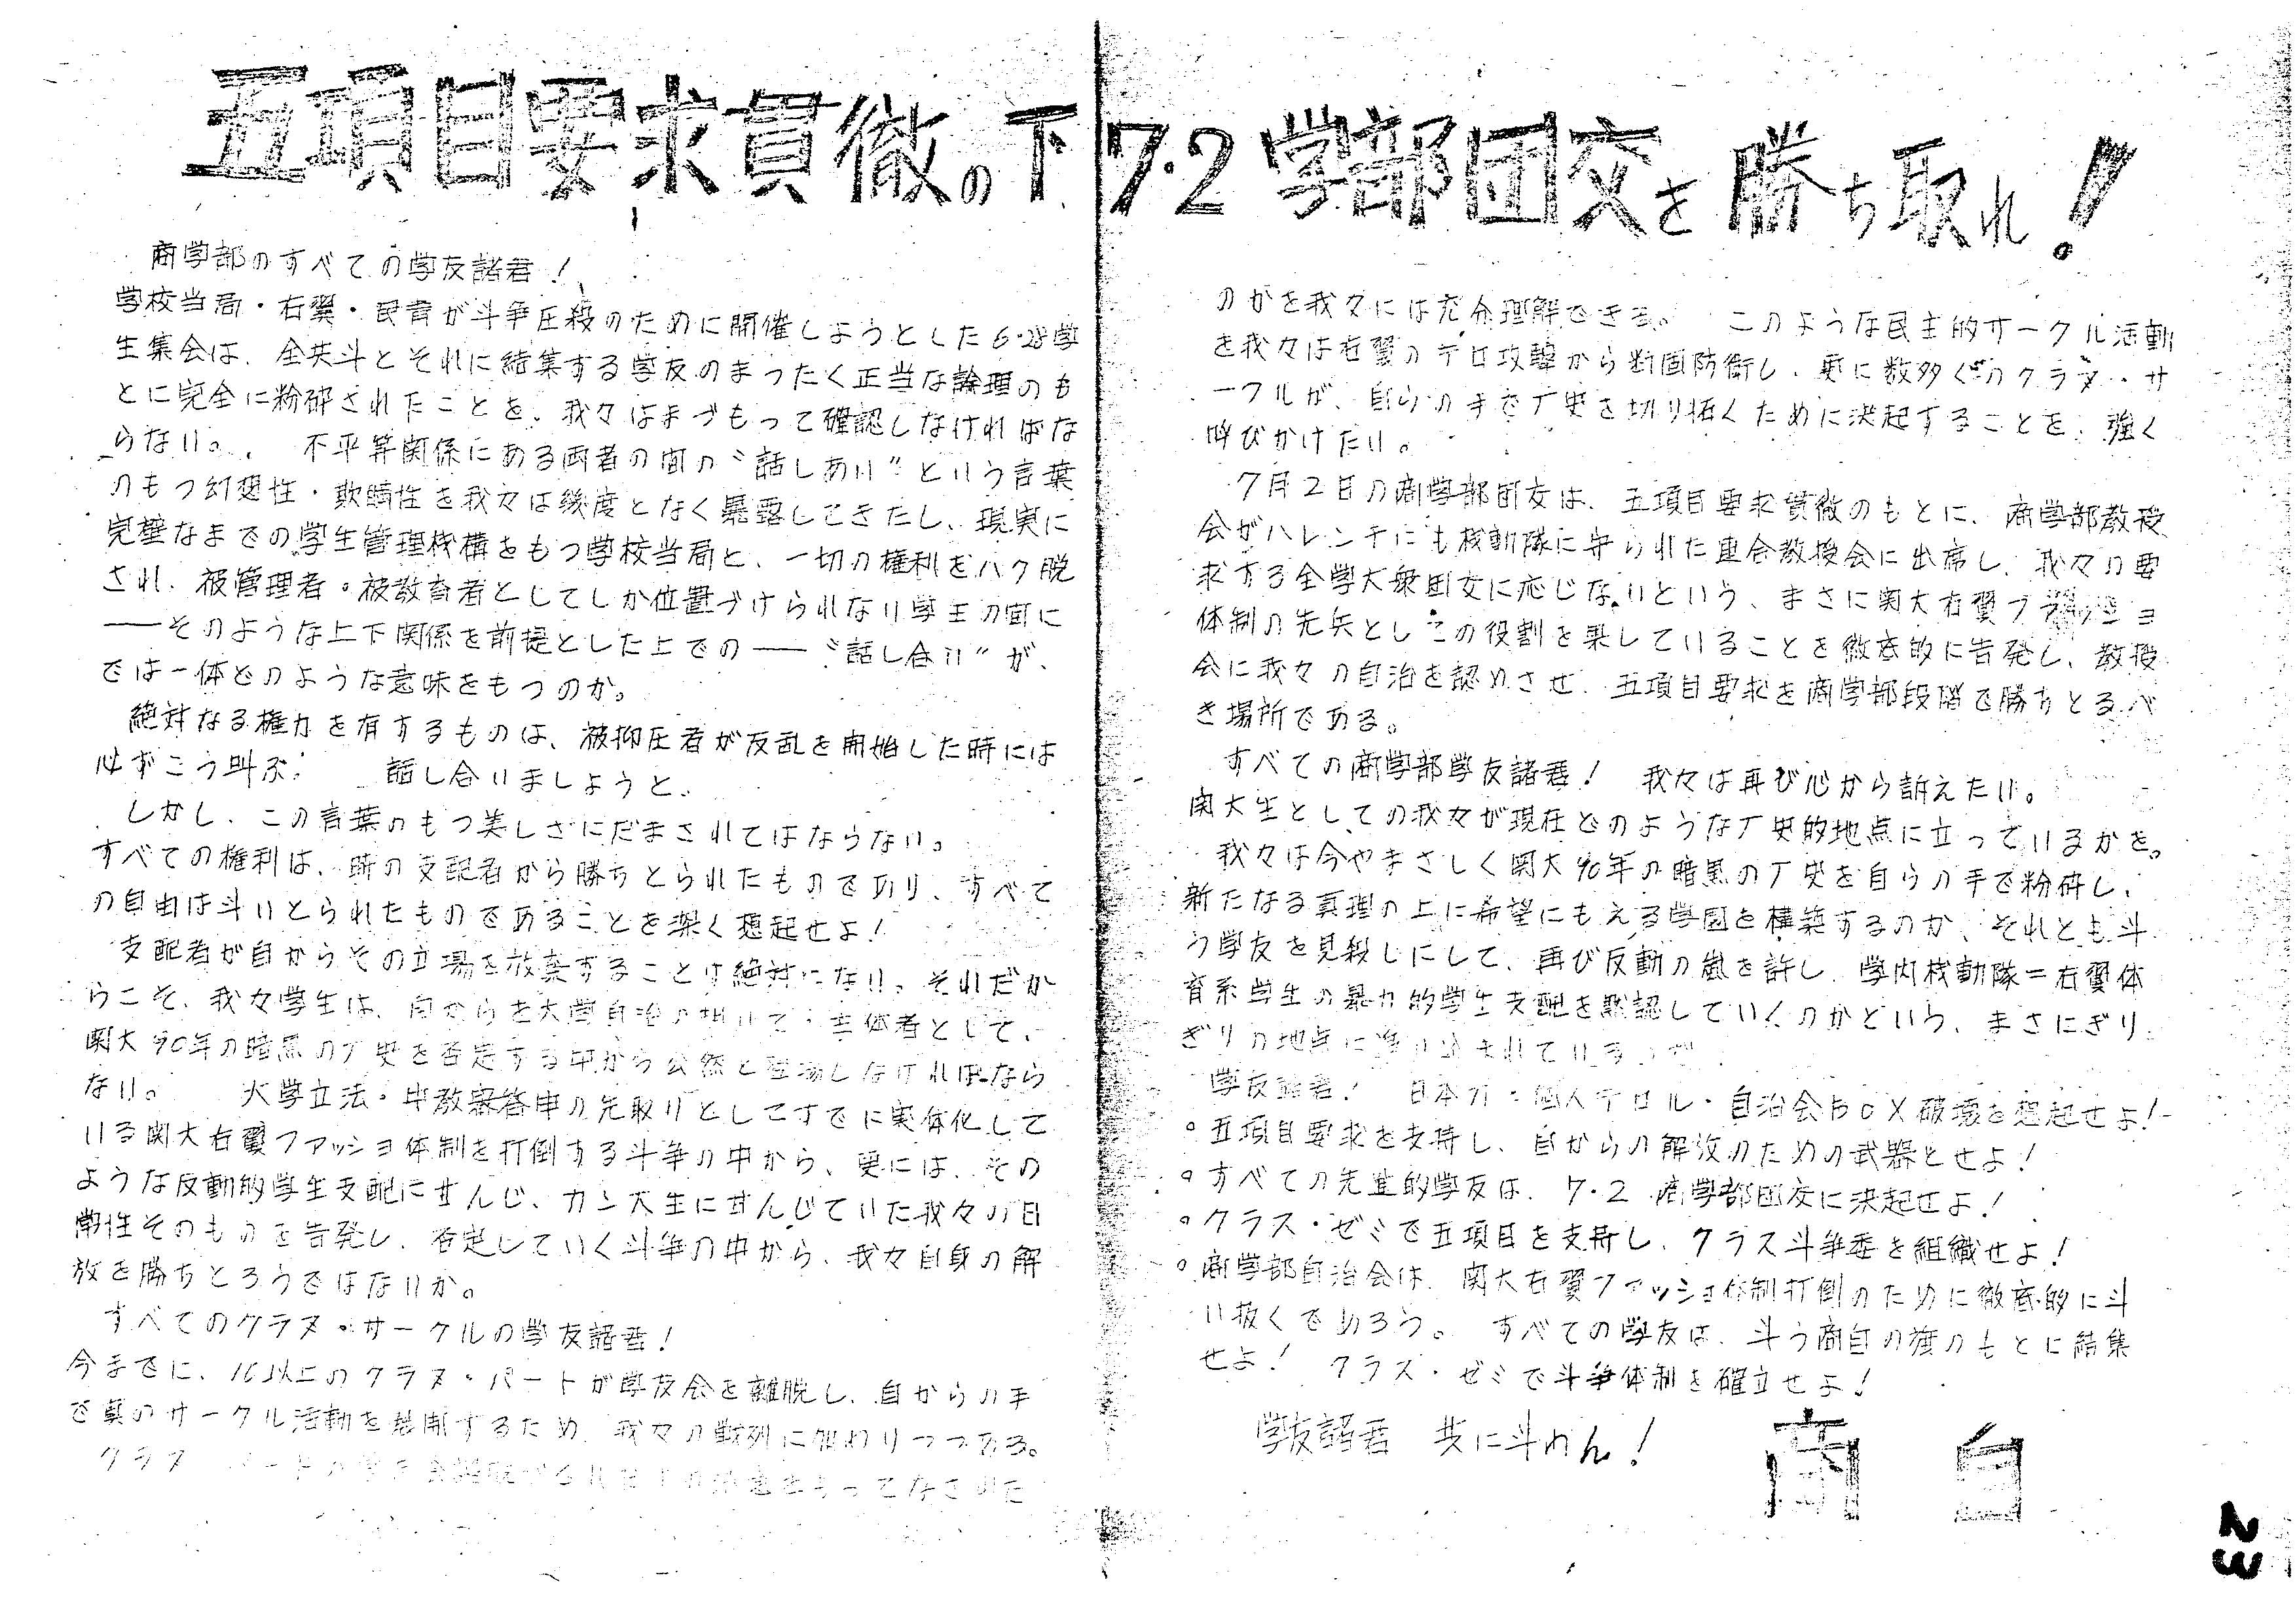 五項目要求貫徹の下7・2学部団交を勝ち取れ!
商学部のすべての学友諸君!
学校当局・右翼・民青が斗争圧殺のために開催しようとした6・28学
生集会は、全共斗とそれに結集する学友のまったく正当な論理のも
とに完全に粉砕されたことを、我々はまづもって確認しなければな
らない。 不平等関係にある両者の間の〝話しあい〟という言葉
のもつ幻想性・欺瞞性を我々は幾度となく暴露してきたし、現実に
完璧なまでの学生管理機構をもつ学校当局と、一切の権利をハク脱
され、被管理者・被教育者としてしか位置づけられない学生の間に
――そのような上下関係を前提とした上での――〝話し合い〟が、
では一体どのような意味をもつのか。
絶対なる権力を有するものは、被抑圧者が反乱を開始した時には
必ずこう叫ぶ。 話し合いましょうと、
しかし、この言葉のもつ美しさにだまされてはならない。
すべての権利は、時の支配者から勝ちとられたものであり、すべて
の自由は斗いとられたものであることを深く想起せよ!
支配者が自からその立場を放棄することは絶対にない。それだか
らこそ、我々学生は、自からを大学自治の 主体者として、
関大90年の暗黒の丆史を否定する中から公然と登場しなければなら
ない。 大学立法・中教審答申の先取りとしてすでに実体化して
いる関大右翼ファッショ体制を打倒する斗争の中から、更には、その
ような反動的学生支配に甘んじ、カン大生に甘んじていた我々の日
常性そのものを告発し、否定していく斗争の中から、我々自身の解
放を勝ちとろうではないか。
すべてのクラヌ・サークルの学友諸君!
今までに、16以上のクラヌ・パートが学友会を離脱し、自からの手
で真のサークル活動を展開するため、我々の戦列に加わりつつある。
クラヌ パートの をもってなされた
のかを我々には充分理解できる。 このような民主的サークル活動
を我々は右翼のテロ攻撃から断固防衛し、更に数多くのクラヌ・サ
ークルが、自らの手で丆史を切り拓くために決起することを、強く
呼びかけたい。
7月2日の商学部団交は、五項目要求貫徹のもとに、商学部教授
会がハレンチにも機動隊に守られた連合教授会に出席し、我々の要
求する全学大衆団交に応じないという、まさに関大右翼ファッショ
体制の先兵としての役割を果していることを徹底的に告発し、教授
会に我々の自治を認めさせ、五項目要求を商学部段階で勝ちとるべ
き場所である。
すべての商学部学友諸君! 我々は再び心から訴えたい。
関大生としての我々が現在どのような丆史的地点に立っているかを。
我々は今やまさしく関大90年の暗黒の丆史を自らの手で粉砕し、
新たなる真理の上に希望にもえる学園を構築するのか、それとも斗
う学友を見殺しにして、再び反動の嵐を許し、学内機動隊=右翼体
育系学生の暴力的学生支配を黙認していくのかという、まさにぎり
ぎりの地点に 込まれている
学友諸君! 日本刀・個人テロル・自治会BOX破壊を想起せよ!
○五項目要求を支持し、自からの解放のための武器とせよ!
○すべての先進的学友は、7・2 商学部団交に決起せよ!
○クラス・ゼミで五項目を支持し、クラス斗争委を組織せよ!
○商学部自治会は、関大右翼ファッショ体制打倒のために徹底的に斗
い抜くであろう。 すべての学友は、斗う商自の旗のもとに結集
せよ! クラス・ゼミで斗争体制を確立せよ!
学友諸君 共に斗わん!
商自
23